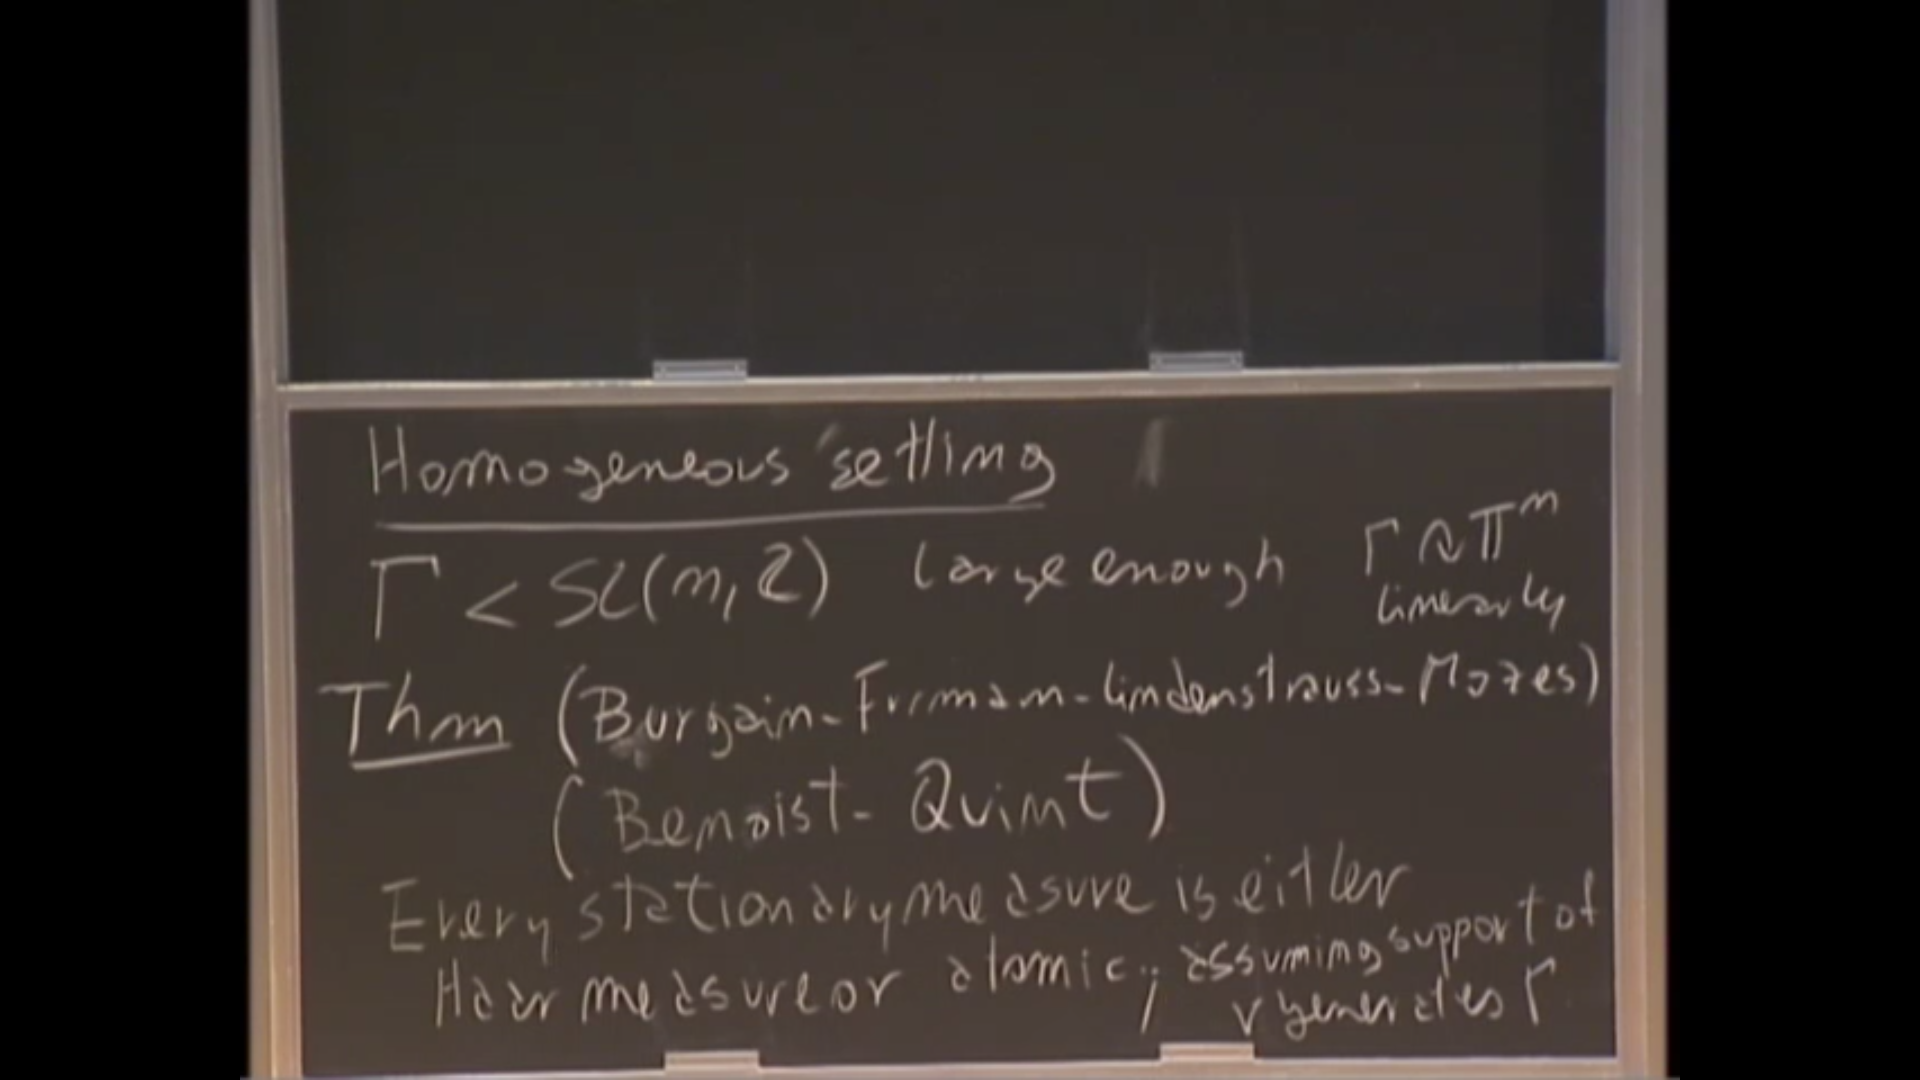 Homogeneous setting
Γ < SL(n, Z) large enough Γ ↷ 𝕋ⁿ
linearly
Thm (Burgain-Furman-Lindenstrauss-Mozes)
(Benoist-Quint)
Every stationary measure is either
Haar measure or atomic, assuming support of
ν generates Γ